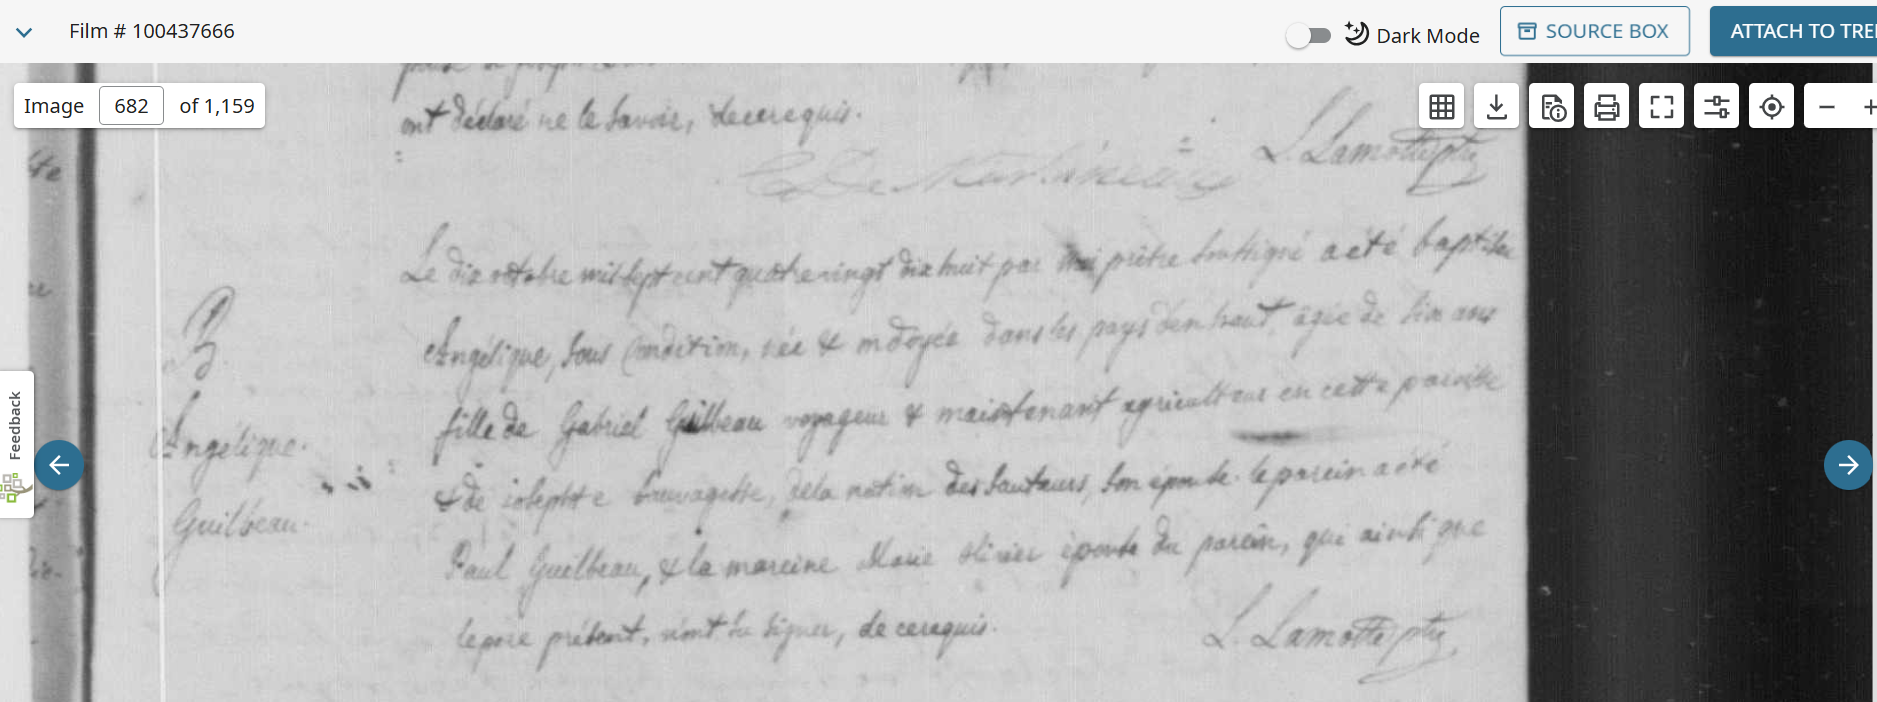 Film # 100437666
Dark Mode
SOURCE BOX
ATTACH TO TRE
Image 682 of 1,159
ont déclaré ne le savoir, de ce requis.
L. Lamotte ptre
Le dix octobre mil sept cent quatrevingt dix huit par moi prêtre soussigné a été baptisée
B.
Angélique, sous condition, née & ondoyée dans les pays d'en haut, âgée de six ans
fille de Gabriel Guilbeau voyageur & maintenant agriculteur en cette paroisse
Angélique
& de iosephte sauvagesse, de la nation des sauteurs, son épouse. le parein a été
Guilbeau
Paul Guilbeau, & la mareine Marie olivier épouse du parein, qui ainsi que
le père présent, n'ont su signer, de ce requis.
L. Lamotte ptre
Feedback